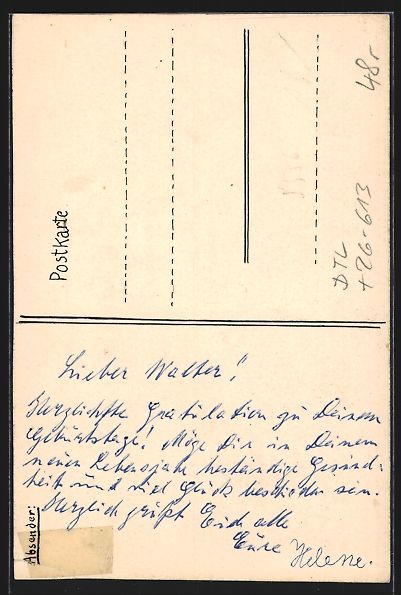 Postkarte
48,-
DTL
+26-613
Lieber Walter!
Herzlichste Gratulation zu Deinem
Geburtstage! Möge Dir in Deinem
neuen Lebensjahr beständige Gesund-
heit und viel Glück beschieden sein.
Herzlich grüßt Euch alle
Eure Helene.
Absender: